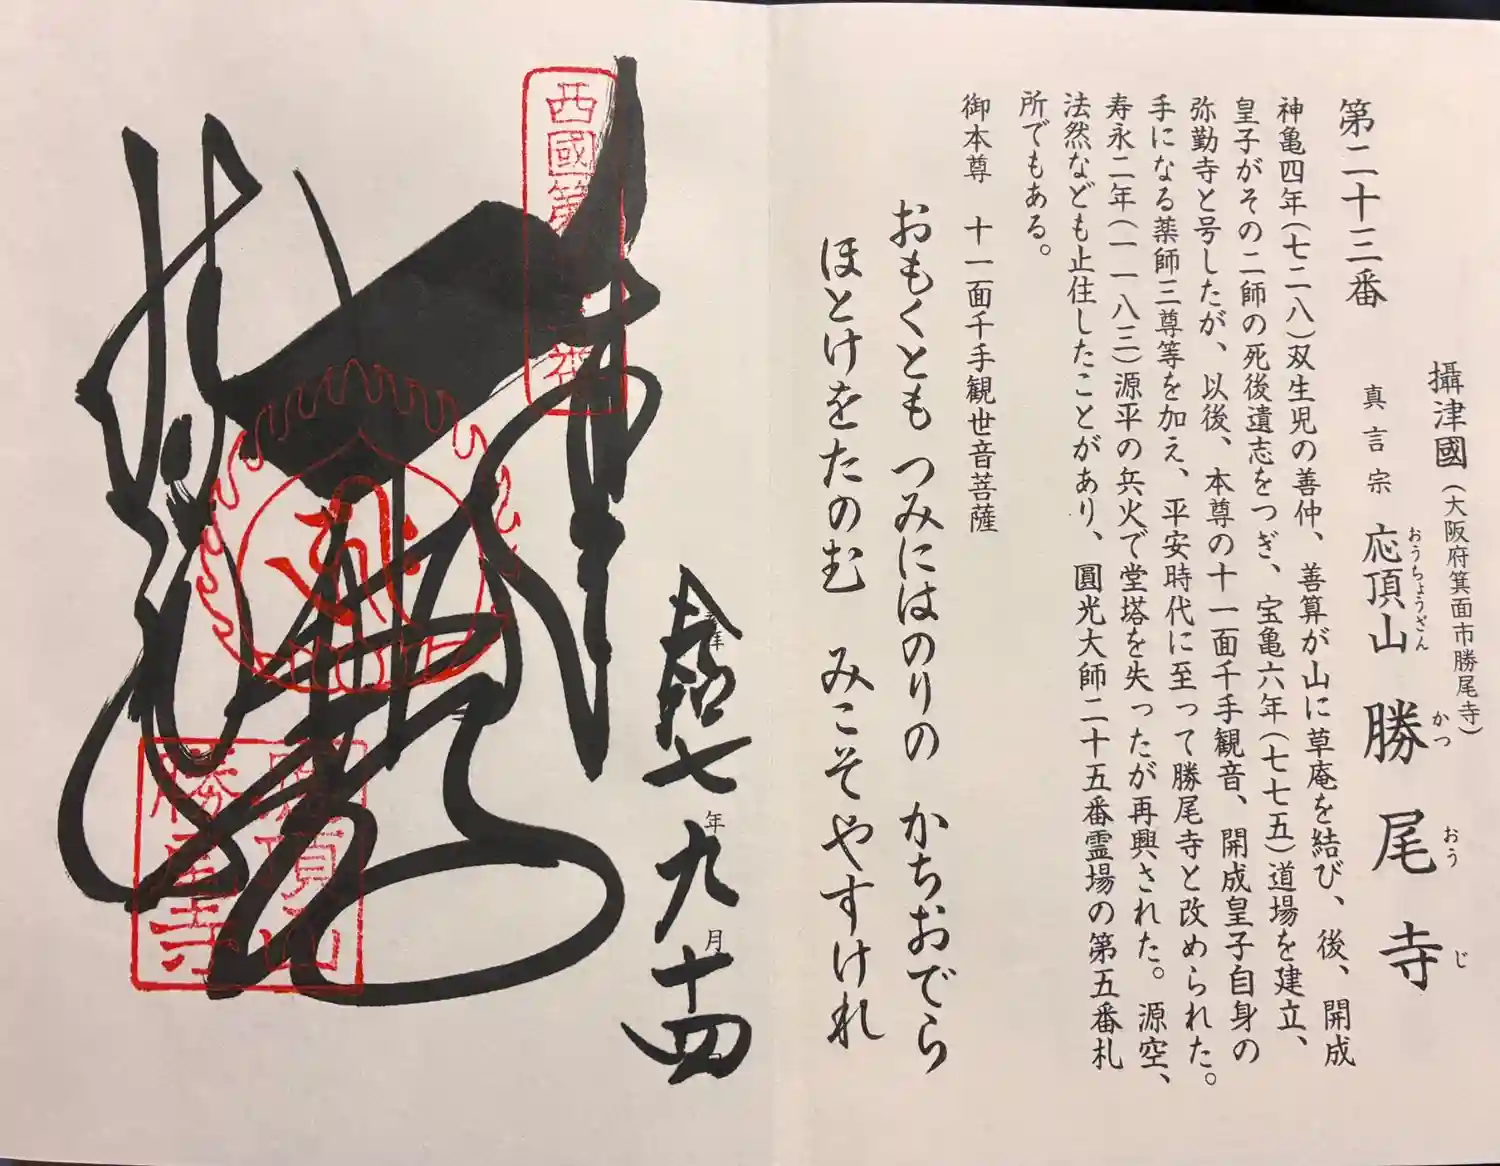 第二十三番
攝津國(大阪府箕面市勝尾寺)
真言宗 応頂山 勝尾寺
おうちょうざん
かつ おう じ
神亀四年(七二八)双生児の善仲、善算が山に草庵を結び、後、開成
皇子がその二師の死後遺志をつぎ、宝亀六年(七七五)道場を建立、
弥勤寺と号したが、以後、本尊の十一面千手観音、開成皇子自身の
手になる薬師三尊等を加え、平安時代に至って勝尾寺と改められた。
寿永二年(一一八三)源平の兵火で堂塔を失ったが再興された。源空、
法然なども止住したことがあり、圓光大師二十五番霊場の第五番札
所でもある。
御本尊 十一面千手観世音菩薩
おもくとも つみにはのりの かちおでら
ほとけをたのむ みこそやすけれ
七年九月十四
西國第
應頂山
勝尾寺